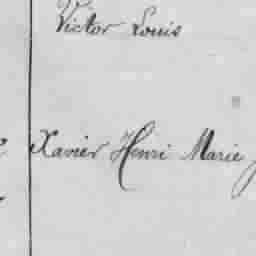 Victor Louis
Xavier Henri Marie